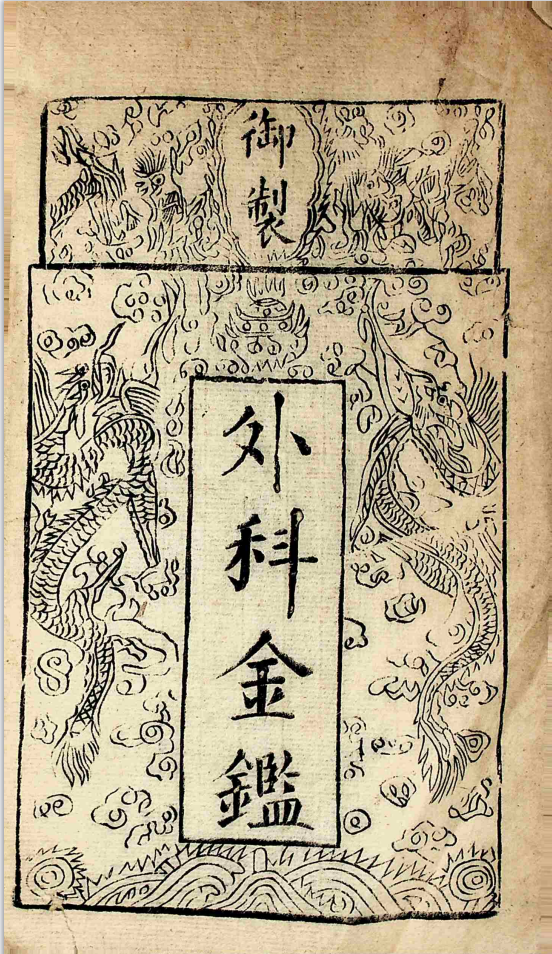 御製
外科金鑑